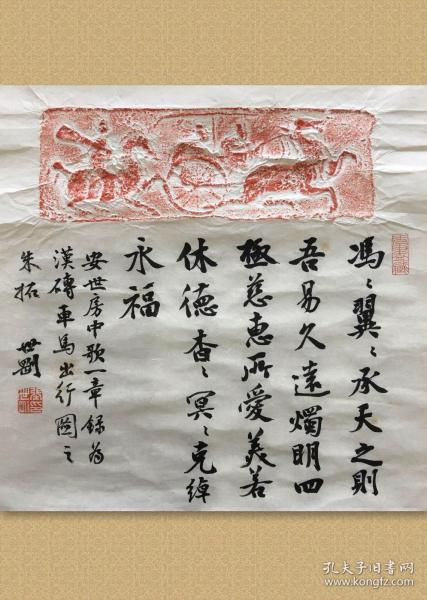 馮〻翼〻承天之則
吾易久遠燭明四
極慈惠所愛美若
休德杳〻冥〻克綽
永福
安世房中歌一章録为
漢磚車馬出行圖之
朱拓 世劉
孔夫子旧书网
www.kongfz.com